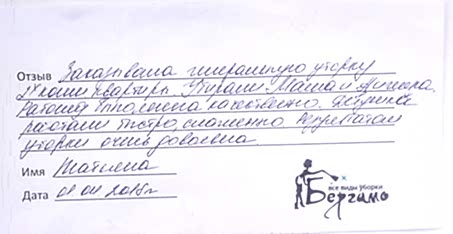 Отзыв Заказывала генеральную уборку
2х комн квартиры. Убирали Маша и Анжела.
Работу выполнена качественно. Девушки
работали быстро, слаженно. Результатом
уборки очень довольна.
Имя Татьяна
Дата 01.04.2015г
все виды уборки
Бергамо